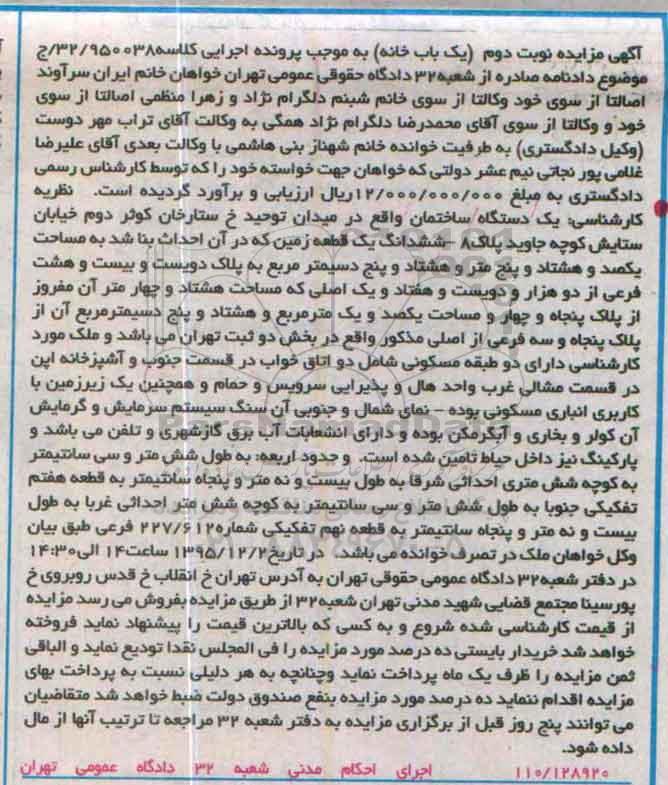 آگهی مزایده نوبت دوم (یک باب خانه) به موجب پرونده اجرایی کلاسه۳۲/۹۵۰۰۳۸/ج
موضوع دادنامه صادره از شعبه۳۲ دادگاه حقوقی عمومی تهران خواهان خانم ایران سرآوند
اصالتا از سوی خود وکالتا از سوی خانم شبنم دلگرام نژاد و زهرا منظمی اصالتا از سوی
خود و وکالتا از سوی آقای محمدرضا دلگرام نژاد همگی به وکالت آقای تراب مهر دوست
(وکیل دادگستری) به طرفیت خوانده خانم شهناز بنی هاشمی با وکالت بعدی آقای علیرضا
غلامی پور نجاتی نیم عشر دولتی که خواهان جهت خواسته خود را که توسط کارشناس رسمی
دادگستری به مبلغ ۱۲/۰۰۰/۰۰۰/۰۰۰ریال ارزیابی و برآورد گردیده است. نظریه
کارشناسی: یک دستگاه ساختمان واقع در میدان توحید خ ستارخان کوثر دوم خیابان
ستایش کوچه جاوید پلاک۸ -ششدانگ یک قطعه زمین که در آن احداث بنا شد به مساحت
یکصد و هشتاد و پنج متر و هشتاد و پنج دسیمتر مربع به پلاک دویست و بیست و هشت
فرعی از دو هزار و دویست و هفتاد و یک اصلی که مساحت هشتاد و چهار متر آن مفروز
از پلاک پنجاه و چهار و مساحت یکصد و یک مترمربع و هشتاد و پنج دسیمترمربع آن از
پلاک پنجاه و سه فرعی از اصلی مذکور واقع در بخش دو ثبت تهران می باشد و ملک مورد
کارشناسی دارای دو طبقه مسکونی شامل دو اتاق خواب در قسمت جنوب و آشپزخانه اپن
در قسمت مشالی غرب واحد هال و پذیرایی سرویس و حمام و همچنین یک زیرزمین با
کاربری انباری مسکونی بوده - نمای شمال و جنوبی آن سنگ سیستم سرمایش و گرمایش
آن کولر و بخاری و آبگرمکن بوده و دارای انشعابات آب برق گازشهری و تلفن می باشد و
پارکینگ نیز داخل حیاط تامین شده است. و حدود اربعه: به طول شش متر و سی سانتیمتر
به کوچه شش متری احداثی شرقا به طول بیست و نه متر و پنجاه سانتیمتر به قطعه هفتم
تفکیکی جنوبا به طول شش متر و سی سانتیمتر به کوچه شش متر احداثی غربا به طول
بیست و نه متر و پنجاه سانتیمتر به قطعه نهم تفکیکی شماره۲۲۷/۶۱۲ فرعی طبق بیان
وکل خواهان ملک در تصرف خوانده می باشد. در تاریخ۱۳۹۵/۱۲/۲ ساعت۱۴ الی۱۴:۳۰
در دفتر شعبه۳۲ دادگاه عمومی حقوقی تهران به آدرس تهران خ انقلاب خ قدس روبروی خ
پورسینا مجتمع قضایی شهید مدنی تهران شعبه۳۲ از طریق مزایده بفروش می رسد مزایده
از قیمت کارشناسی شده شروع و به کسی که بالاترین قیمت را پیشنهاد نماید فروخته
خواهد شد خریدار بایستی ده درصد مورد مزایده را فی المجلس نقدا تودیع نماید و الباقی
ثمن مزایده را ظرف یک ماه پرداخت نماید وچنانچه به هر دلیلی نسبت به پرداخت بهای
مزایده اقدام ننماید ده درصد مورد مزایده بنفع صندوق دولت ضبط خواهد شد متقاضیان
می توانند پنج روز قبل از برگزاری مزایده به دفتر شعبه ۳۲ مراجعه تا ترتیب آنها از مال
داده شود.
۱۱۰/۱۲۸۹۲۰ اجرای احکام مدنی شعبه ۳۲ دادگاه عمومی تهران